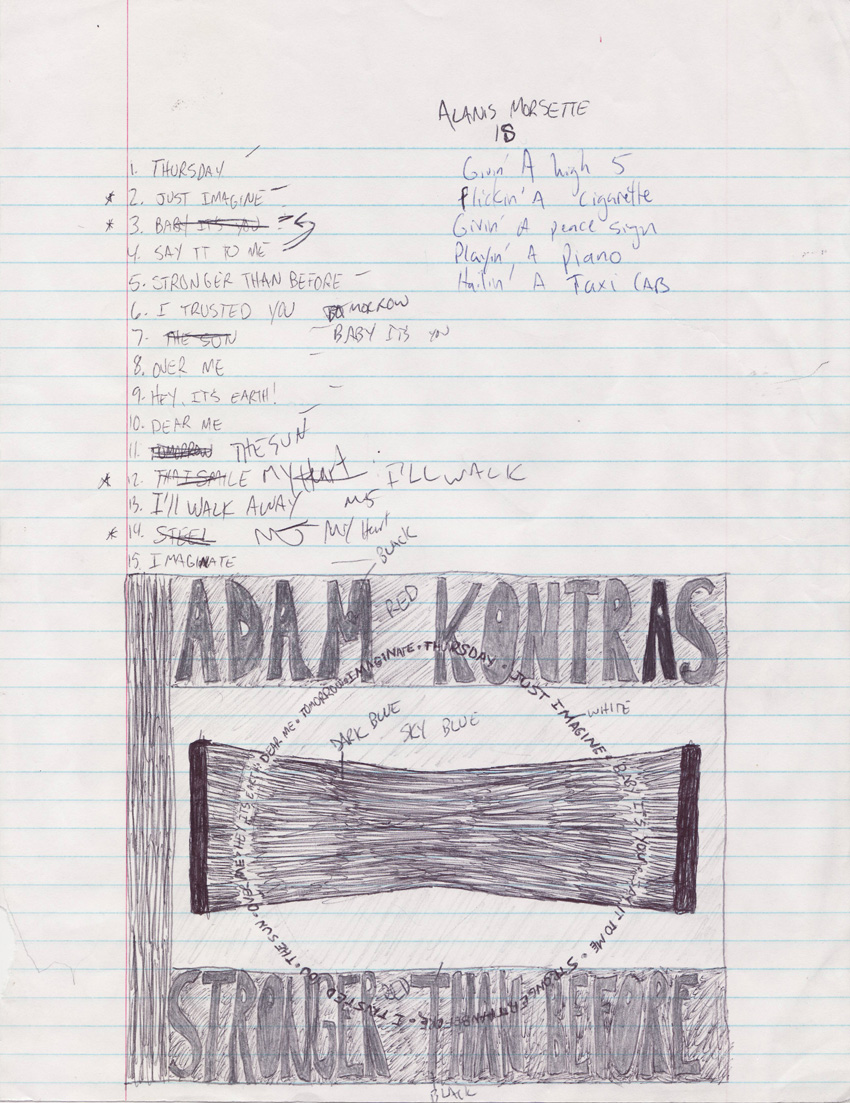 ALANIS MORSETTE
IS
Givin' A high 5
flickin' A Cigarette
Givin' A peace sign
Playin' A Piano
Hailin' A Taxi CAB
1. THURSDAY
* 2. JUST IMAGINE
* 3. BABY IT'S YOU
4. SAY IT TO ME
5. STRONGER THAN BEFORE
6. I TRUSTED YOU TOMORROW
7. THE SUN BABY ITS YOU
8. OVER ME
9. HEY, ITS EARTH!
10. DEAR ME
11. TOMORROW THE SUN
* 12. THAT SMILE MY Heart I'LL WALK
13. I'LL WALK AWAY
* 14. STEEL MY Heart
15. IMAGINATE
BLACK
ADAM KONTRAS
RED
THURSDAY • JUST IMAGINE • BABY IT'S YOU • SAY IT TO ME • STRONGER THAN BEFORE • I TRUSTED YOU • THE SUN • OVER ME • HEY ITS EARTH • DEAR ME • TOMORROW • IMAGINATE •
WHITE
DARK BLUE
SKY BLUE
STRONGER THAN BEFORE
RED
BLACK